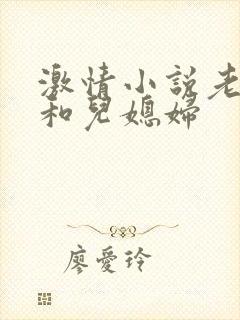 激情小說老
和兒媳婦
廖愛玲